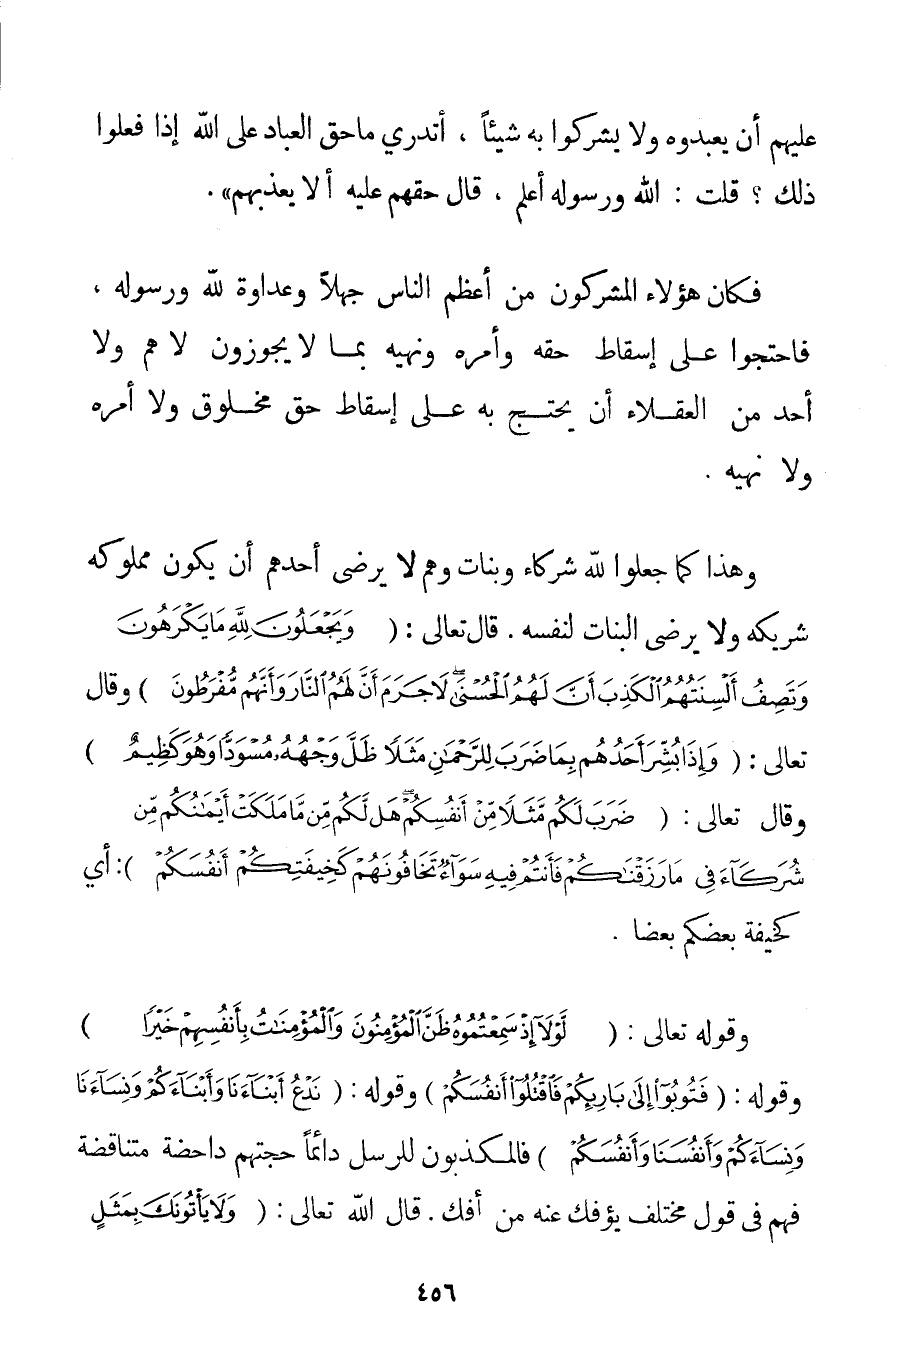 عليهم أن يعبدوه ولا يشركوا به شيئاً ، أتدري ماحق العباد على الله إذا فعلوا
ذلك ؟ قلت : الله ورسوله أعلم ، قال حقهم عليه ألا يعذبهم» .
فكان هؤلاء المشركون من أعظم الناس جهلاً وعداوة لله ورسوله ،
فاحتجوا على إسقاط حقه وأمره ونهيه بما لا يجوزون لا هم ولا
أحد من العقلاء أن يحتج به على إسقاط حق مخلوق ولا أمره
ولا نهيه .
وهذا كما جعلوا لله شركاء وبنات وهم لا يرضى أحدهم أن يكون مملوكه
شريكه ولا يرضى البنات لنفسه . قال تعالى : ( وَيَجْعَلُونَ لِلَّهِ مَا يَكْرَهُونَ
وَتَصِفُ أَلْسِنَتُهُمُ ٱلْكَذِبَ أَنَّ لَهُمُ ٱلْحُسْنَىٰ ۖ لَا جَرَمَ أَنَّ لَهُمُ ٱلنَّارَ وَأَنَّهُم مُّفْرَطُونَ ) وقال
تعالى : ( وَإِذَا بُشِّرَ أَحَدُهُم بِمَا ضَرَبَ لِلرَّحْمَٰنِ مَثَلًا ظَلَّ وَجْهُهُۥ مُسْوَدًّا وَهُوَ كَظِيمٌ )
وقال تعالى : ( ضَرَبَ لَكُم مَّثَلًا مِّنْ أَنفُسِكُمْ ۖ هَل لَّكُم مِّن مَّا مَلَكَتْ أَيْمَٰنُكُم مِّن
شُرَكَآءَ فِى مَا رَزَقْنَٰكُمْ فَأَنتُمْ فِيهِ سَوَآءٌ تَخَافُونَهُمْ كَخِيفَتِكُمْ أَنفُسَكُمْ ) : أي
كخيفة بعضكم بعضا .
وقوله تعالى : ( لَّوْلَآ إِذْ سَمِعْتُمُوهُ ظَنَّ ٱلْمُؤْمِنُونَ وَٱلْمُؤْمِنَٰتُ بِأَنفُسِهِمْ خَيْرًا )
وقوله : ( فَتُوبُوٓا۟ إِلَىٰ بَارِئِكُمْ فَٱقْتُلُوٓا۟ أَنفُسَكُمْ ) وقوله : ( نَدْعُ أَبْنَآءَنَا وَأَبْنَآءَكُمْ وَنِسَآءَنَا
وَنِسَآءَكُمْ وَأَنفُسَنَا وَأَنفُسَكُمْ ) فالمكذبون للرسل دائماً حجتهم داحضة متناقضة
فهم فى قول مختلف يؤفك عنه من أفك . قال الله تعالى : ( وَلَا يَأْتُونَكَ بِمَثَلٍ
٤٥٦